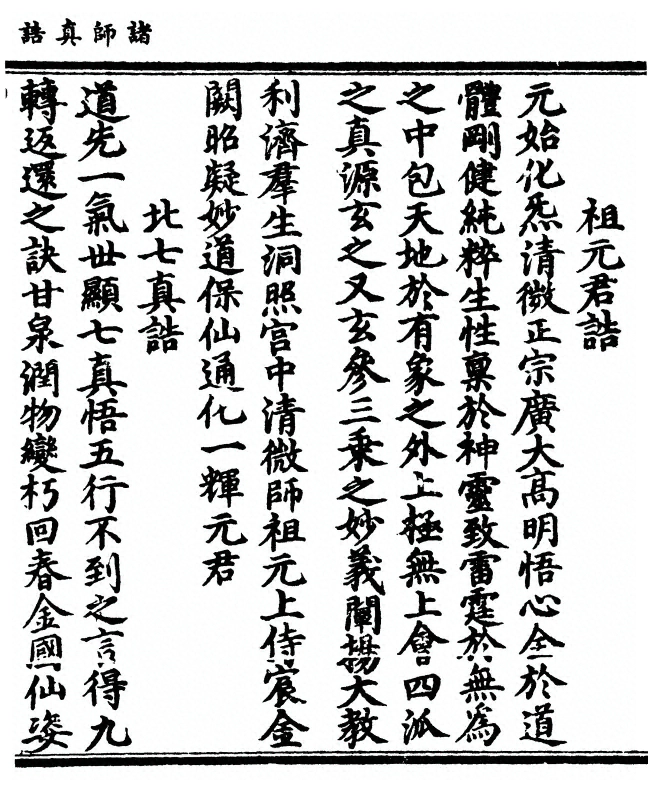 諸師真誥
祖元君誥
元始化炁清微正宗廣大高明悟心全於道
體剛健純粹生性稟於神靈致雷霆於無為
之中包天地於有象之外上極無上會四泒
之真源玄之又玄參三乘之妙義闡揚大教
利濟羣生洞照宮中清微師祖元上侍宸金
闕昭凝妙道保仙通化一輝元君
北七真誥
道先一氣世顯七真悟五行不到之言得九
轉返還之訣甘泉潤物變朽回春金國仙姿